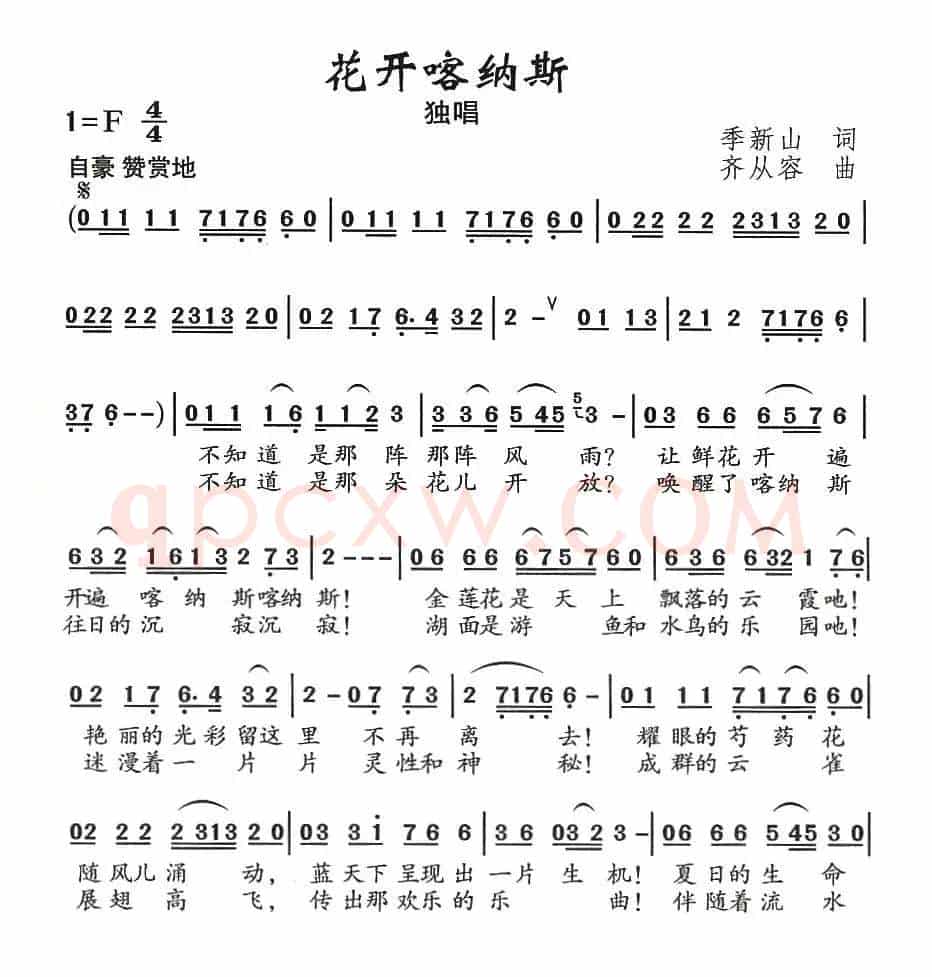 花开喀纳斯
独唱
1=F 4/4
季新山 词
自豪 赞赏地
齐从容 曲
(0 11 11 7176 60 | 0 11 11 7176 60 | 0 22 22 2313 20 |
022 22 2313 20 | 02 17 6·4 32 | 2 - ∨ 01 13 | 21 2 7176 6 |
37 6 - -) | 011 16 112 3 | 336 545 5 3 - | 03 66 657 6 |
不知道 是那 阵 那阵 风 雨? 让鲜花开 遍
不知道 是那 朵 花儿 开 放? 唤醒了喀纳 斯
632 1613 2 73 | 2 - - - | 06 66 675760 | 636 632 1 76 |
开遍 喀 纳 斯喀纳斯! 金莲花是 天 上 飘落的云 霞吔!
往日的沉 寂沉 寂! 湖面是游 鱼和 水鸟的乐 园吔!
02 17 6·4 32 | 2 - 07 73 | 2 7176 6 - | 01 11 7176 60 |
艳丽的光彩留这里 不再 离 去! 耀眼的芍 药 花
迷漫着一 片 片 灵性和神 秘! 成群的云 雀
02 22 2313 20 | 03 3i 76 6 | 36 032 3 - | 06 66 545 30 |
随风儿涌 动, 蓝天下呈现出一片生 机! 夏日的生 命
展翅高 飞, 传出那欢乐的乐 曲! 伴随着流 水
qpcxw.com